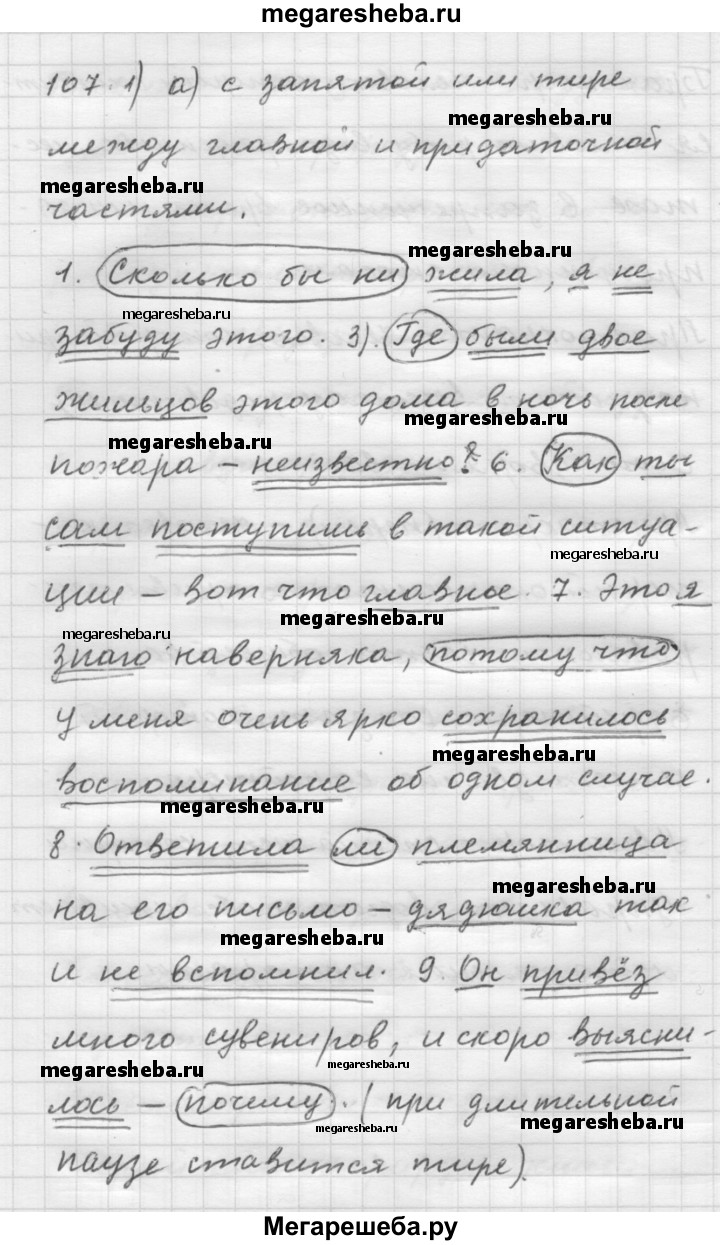 megaresheba.ru
107.1) а) с запятой или тире
megaresheba.ru
между главной и придаточной
megaresheba.ru
частями.
megaresheba.ru
1. Сколько бы ни жила, я не
megaresheba.ru
забуду этого. 3). Где были двое
жильцов этого дома в ночь после
megaresheba.ru
megaresheba.ru
пожара – неизвестно? 6. Как ты
сам поступишь в такой ситуа-
megaresheba.ru
ции – вот что главное. 7. Это я
megaresheba.ru
megaresheba.ru
знаю наверняка, потому что
у меня очень ярко сохранилось
megaresheba.ru
воспоминание об одном случае.
megaresheba.ru
8. Ответила ли племянница
megaresheba.ru
на его письмо – дядюшка так
megaresheba.ru
и не вспомнил. 9. Он привёз
много сувениров, и скоро выясни-
megaresheba.ru
megaresheba.ru
лось – почему. (при длительной
megaresheba.ru
megaresheba.ru
паузе ставится тире).
Мегарешеба.ру